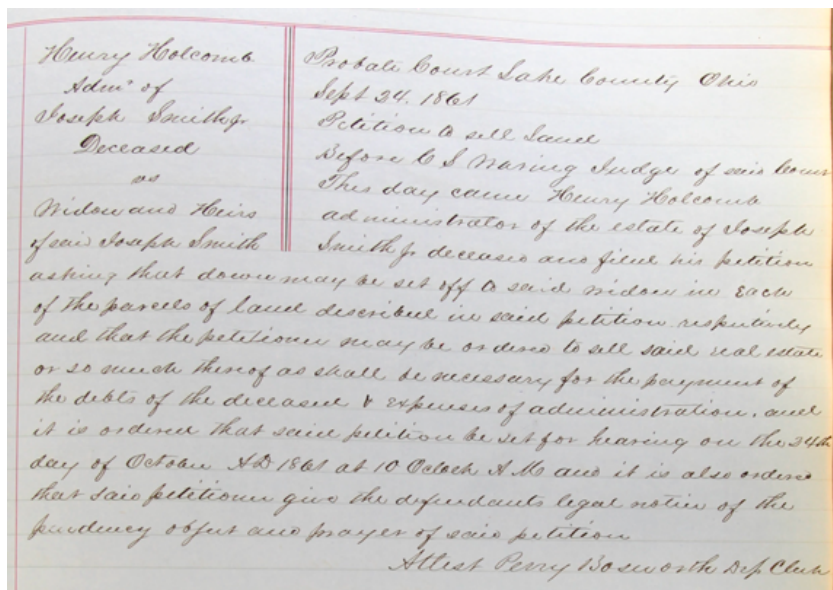 Henry Holcomb
Admr of
Joseph Smith Jr
Deceased
vs
Widow and Heirs
of said Joseph Smith
Probate Court Lake County Ohio
Sept 24. 1861
Petition to sell Land
Before C S Waring Judge of said Court
This day came Henry Holcomb
administrator of the estate of Joseph
Smith Jr deceased and filed his petition
asking that dower may be set off to said widow in each
of the parcels of land described in said petition respectively
and that the petitioner may be ordered to sell said real estate
or so much thereof as shall be necessary for the payment of
the debts of the deceased & expenses of administration, and
it is ordered that said petition be set for hearing on the 24th
day of October AD 1861 at 10 Oclock A M and it is also ordered
that said petitioner give the defendants legal notice of the
pendency object and prayer of said petition
Attest Perry Bosworth Dep Clerk